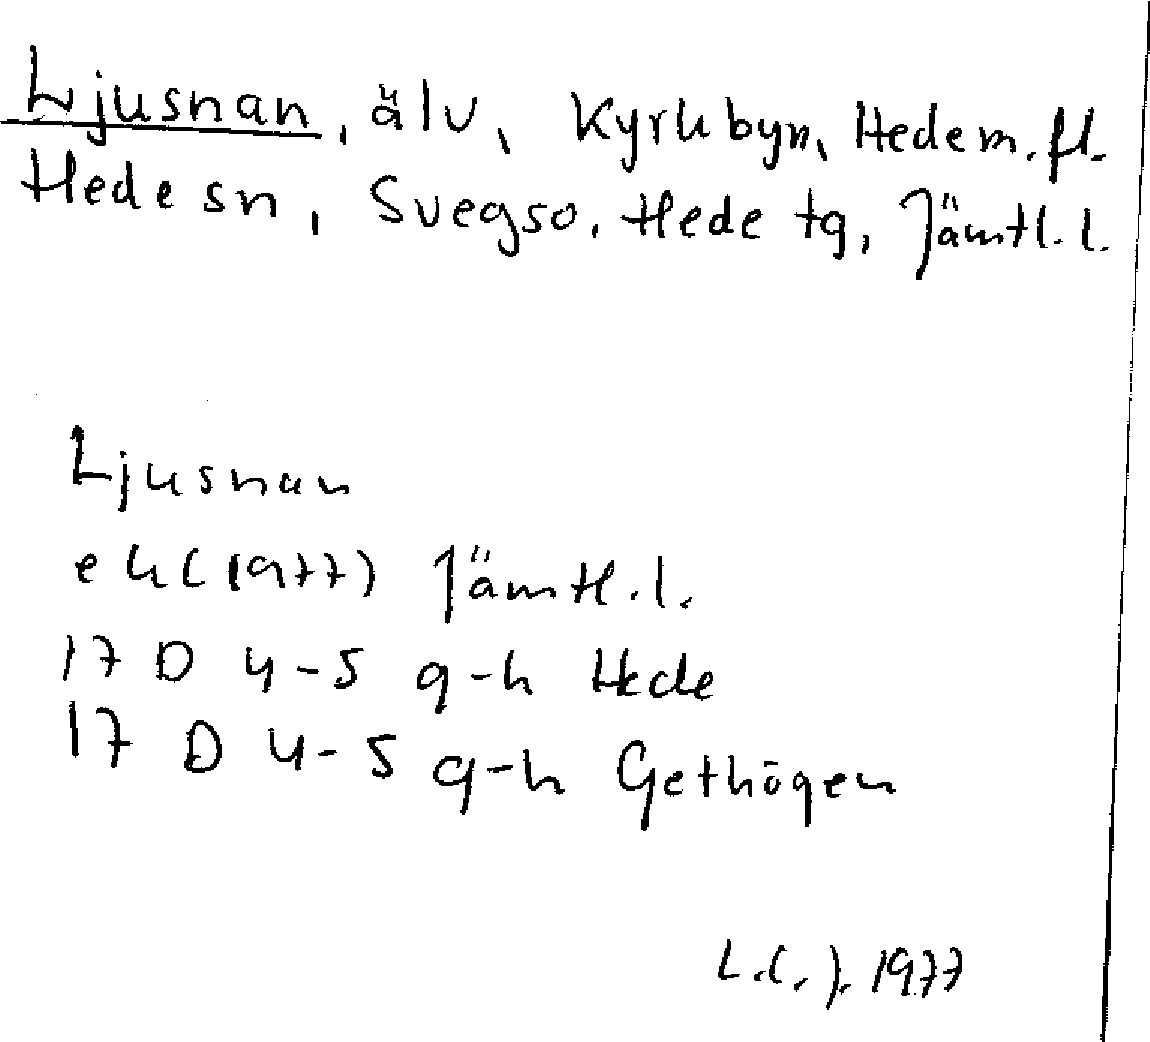 Ljusnan, älv, Kyrkbyn, Hede m. fl.
Hede sn, Svegs so, Hede tg, Jämtl. l.
Ljusnan
ek (1977) Jämtl. l.
17 D 4-5 g-h Hede
17 D 4-5 g-h Gethögen
1977